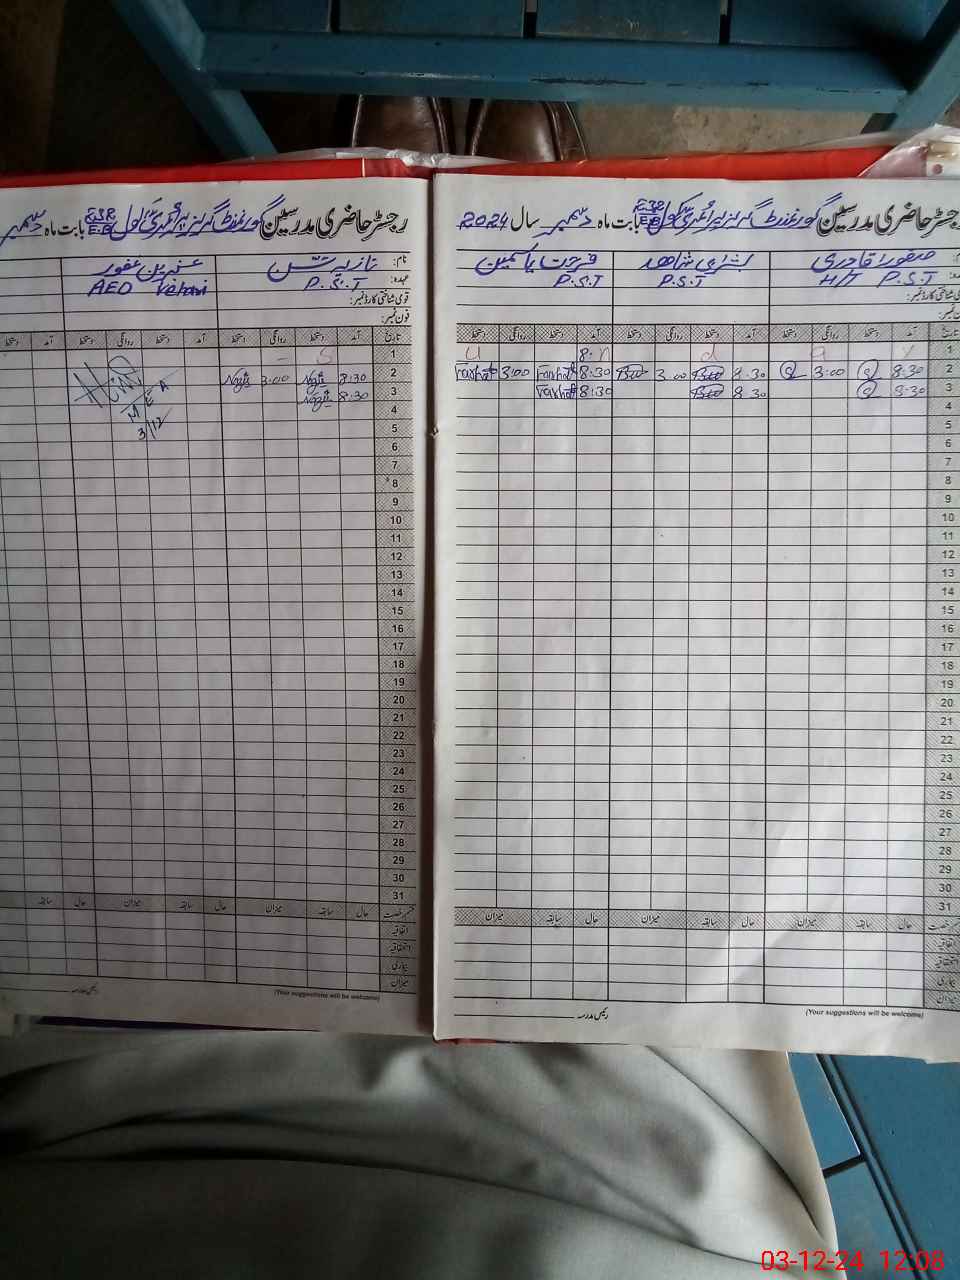 رجسٹر حاضری مدرسین گورنمنٹ گرلز پرائمری سکول 232 E.B بابت ماہ دسمبر سال 2024
صفورا قادری
بشریٰ شاھد
فرحت یاسمین
H/T P.S.T
P.S.T
P.S.T
تاریخ آمد دستخط روانگی دستخط آمد دستخط روانگی دستخط آمد دستخط روانگی دستخط
1 8:
2 8:30 3:00 8.30 3.00 8:30 Farhat 3:00 Farhat
3 8:30 8.30 8:30 Farhat
4
5
6
7
8
9
10
11
12
13
14
15
16
17
18
19
20
21
22
23
24
25
26
27
28
29
30
31
حال سابقہ میزان حال سابقہ میزان حال سابقہ میزان
اتفاقیہ
استحقاقیہ
بیماری
میزان
(Your suggestions will be welcome)
رئیس مدرسہ
رجسٹر حاضری مدرسین گورنمنٹ گرلز پرائمری سکول 232 E.B بابت ماہ دسمبر
نام: نازیہ عنبرین غفور
عہدہ: P.S.T AEO Vehari
قومی شناختی کارڈ نمبر:
فون نمبر:
تاریخ آمد دستخط روانگی دستخط آمد دستخط روانگی دستخط آمد دستخط
1
2 8:30 3:00
3 8:30
MEA
3/12
4
5
6
7
8
9
10
11
12
13
14
15
16
17
18
19
20
21
22
23
24
25
26
27
28
29
30
31
قسم رخصت حال سابقہ میزان حال سابقہ میزان حال سابقہ
اتفاقیہ
استحقاقیہ
بیماری
میزان
(Your suggestions will be welcome)
رئیس مدرسہ
03-12-24 12:08